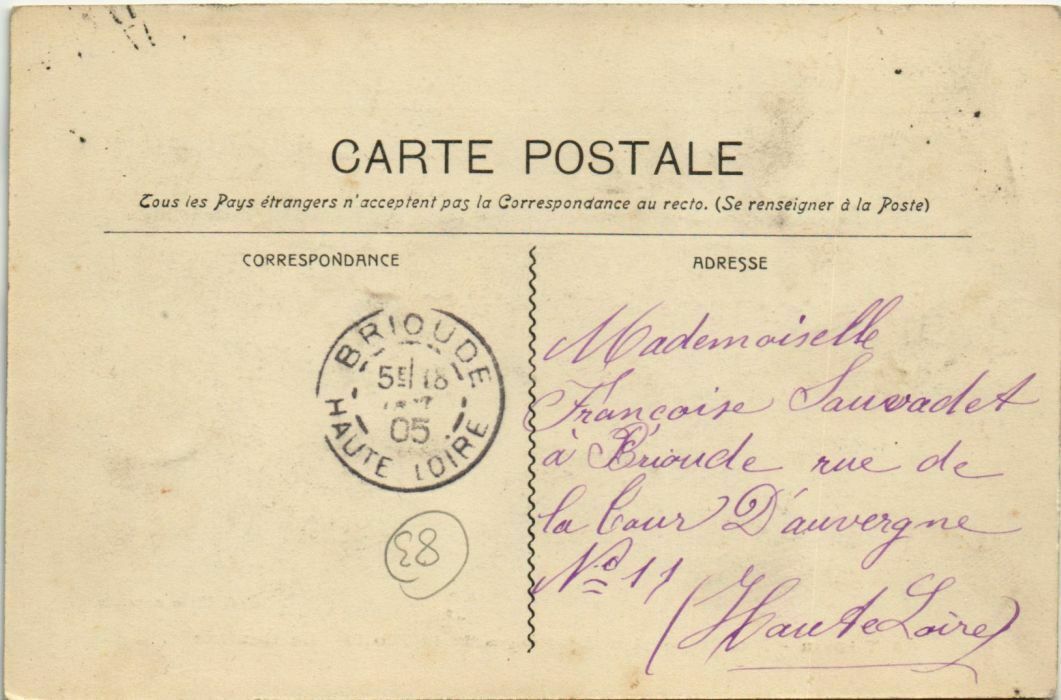 CARTE POSTALE
Tous les Pays étrangers n'acceptent pas la Correspondance au recto. (Se renseigner à la Poste)
CORRESPONDANCE
ADRESSE
BRIOUDE
5E/ 18
05
HAUTE LOIRE
83
Mademoiselle
Françoise Sauvadet
à Brioude rue de
la Cour D'auvergne
No 11
(Haute Loire)